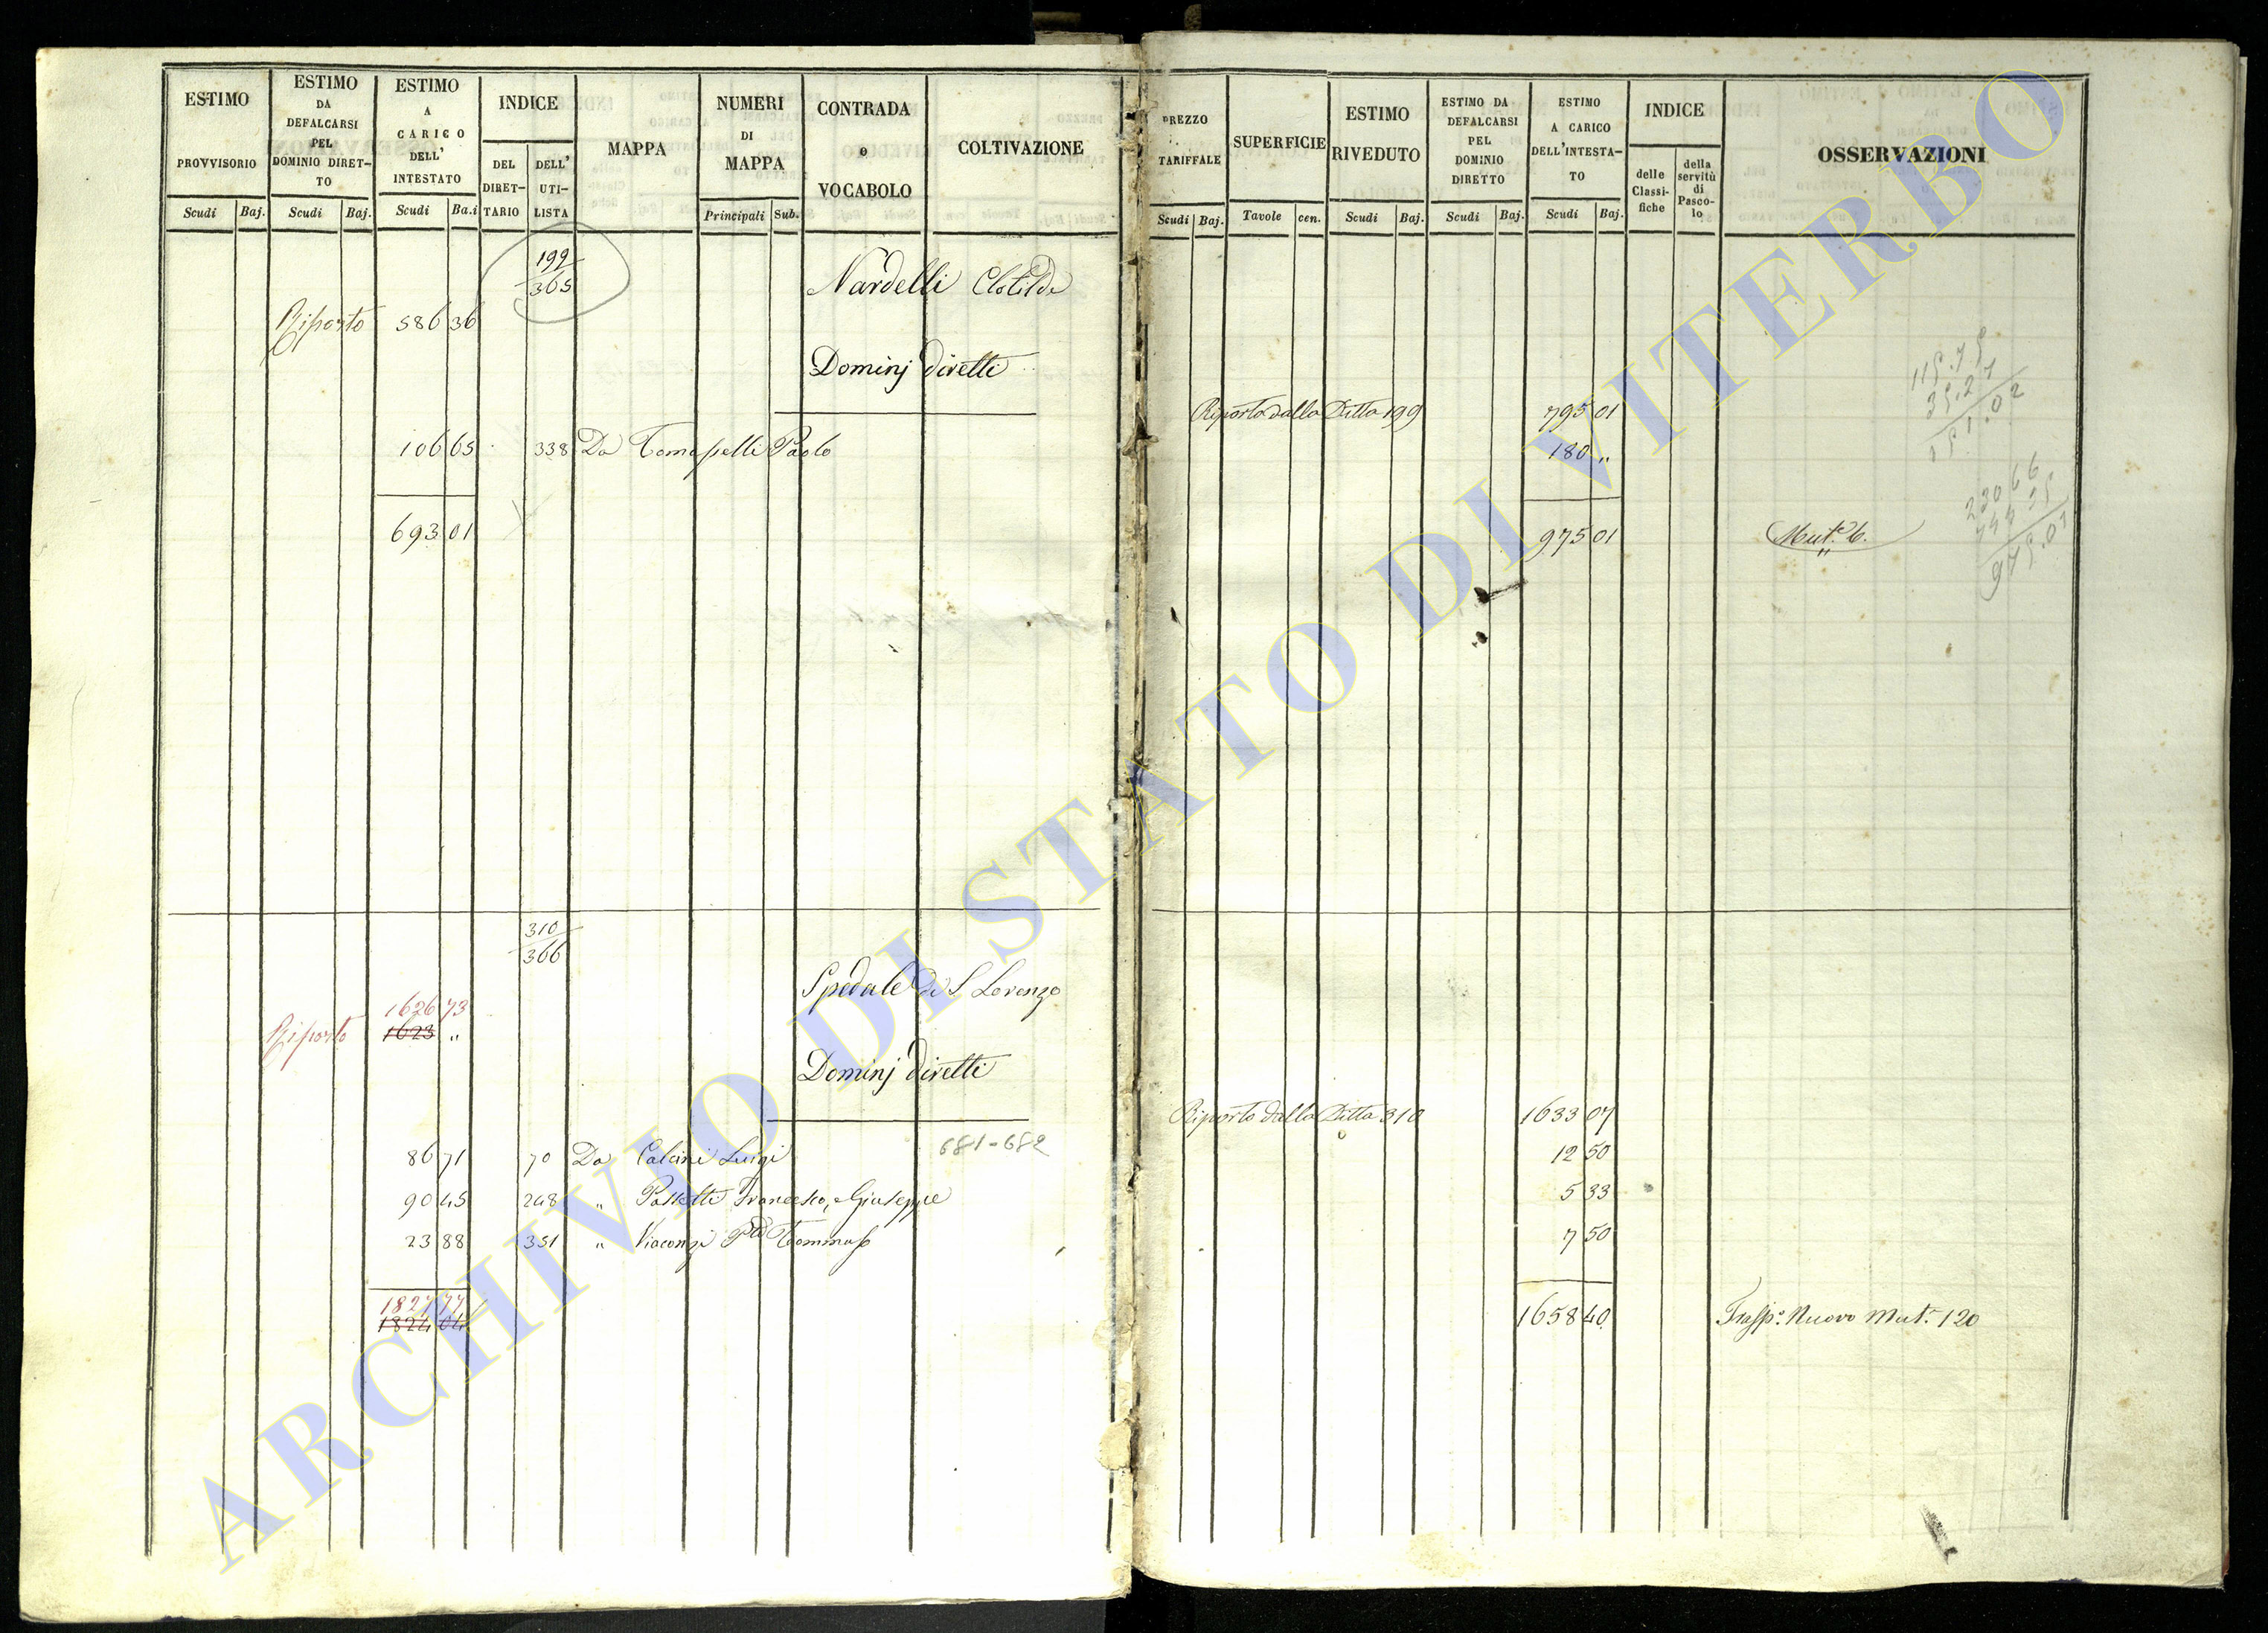 ESTIMO PROVVISORIO
Scudi Baj.
ESTIMO DA DEFALCARSI PEL DOMINIO DIRET-TO
Scudi Baj.
ESTIMO A CARICO DELL' INTESTATO
Scudi Ba.i
INDICE
DEL DIRET-TARIO
DELL' UTI-LISTA
MAPPA
NUMERI DI MAPPA
Principali Sub.
CONTRADA e VOCABOLO
COLTIVAZIONE
PREZZO TARIFFALE
Scudi Baj.
SUPERFICIE
Tavole cen.
ESTIMO RIVEDUTO
Scudi Baj.
ESTIMO DA DEFALCARSI PEL DOMINIO DIRETTO
Scudi Baj.
ESTIMO A CARICO DELL'INTESTA-TO
Scudi Baj.
INDICE
delle Classi-fiche
della servitù di Pasco-lo
OSSERVAZIONI
199
365
Nardelli Clotilde
Riporto 586 36
Dominj diretti
Riporto dalla Ditta 199 795 01
106 65 338 Da Tomasselli Paolo 180 "
693 01 975 01 Mut.e 6.
115.75
35.27
151.02
230 66
744 35
975.01
310
366
Spedale di S Lorenzo
1626 73
Riporto 1623 "
Dominj diretti
Riporto dalla Ditta 310 1633 07
681-682
86 71 70 Da Calcini Luigi 12 50
90 45 248 " Passetti Francesco, e Giuseppe 5 33
23 88 351 " Tommaso 7 50
1827 77
1824 04
1658 40 Trasp.o Nuovo Mut.e 120
ARCHIVIO DI STATO DI VITERBO